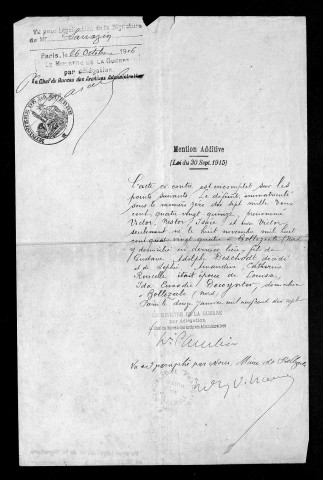 Vu pour Légalisation de la Signature
de Mr Sarrazin
Paris, le 26 Octobre 1916
Le Ministre de la Guerre
par délégation
Le Chef du Bureau des Archives Administratives
MINISTÈRE DE LA GUERRE
Mention Additive
(Loi du 30 Sept. 1915)
L'acte ci contre est incomplet sur les
points suivants. Le défunt, immatriculé
sous le numéro zéro dix sept mille deux
cent quatre vingt quinze, prénommé
Victor, Nestor, et non Victor,
seulement né le huit novembre mil huit
cent quatre vingt quatre à Bollezeele (Nord)
y domicilié en dernier lieu, fils de
Gustave, Adolphe Deschodt décédé
et de Sophie, Amandine Catherine
Rouselle était époux de Louisa,
Ida, domiciliée
à Bollezeele (Nord).
Paris le douze janvier mil neuf cent dix sept
LE MINISTRE DE LA GUERRE
par délégation
Le Chef du Bureau des Archives Administratives
Vu et paraphé par Nous, Maire de Bollezeele